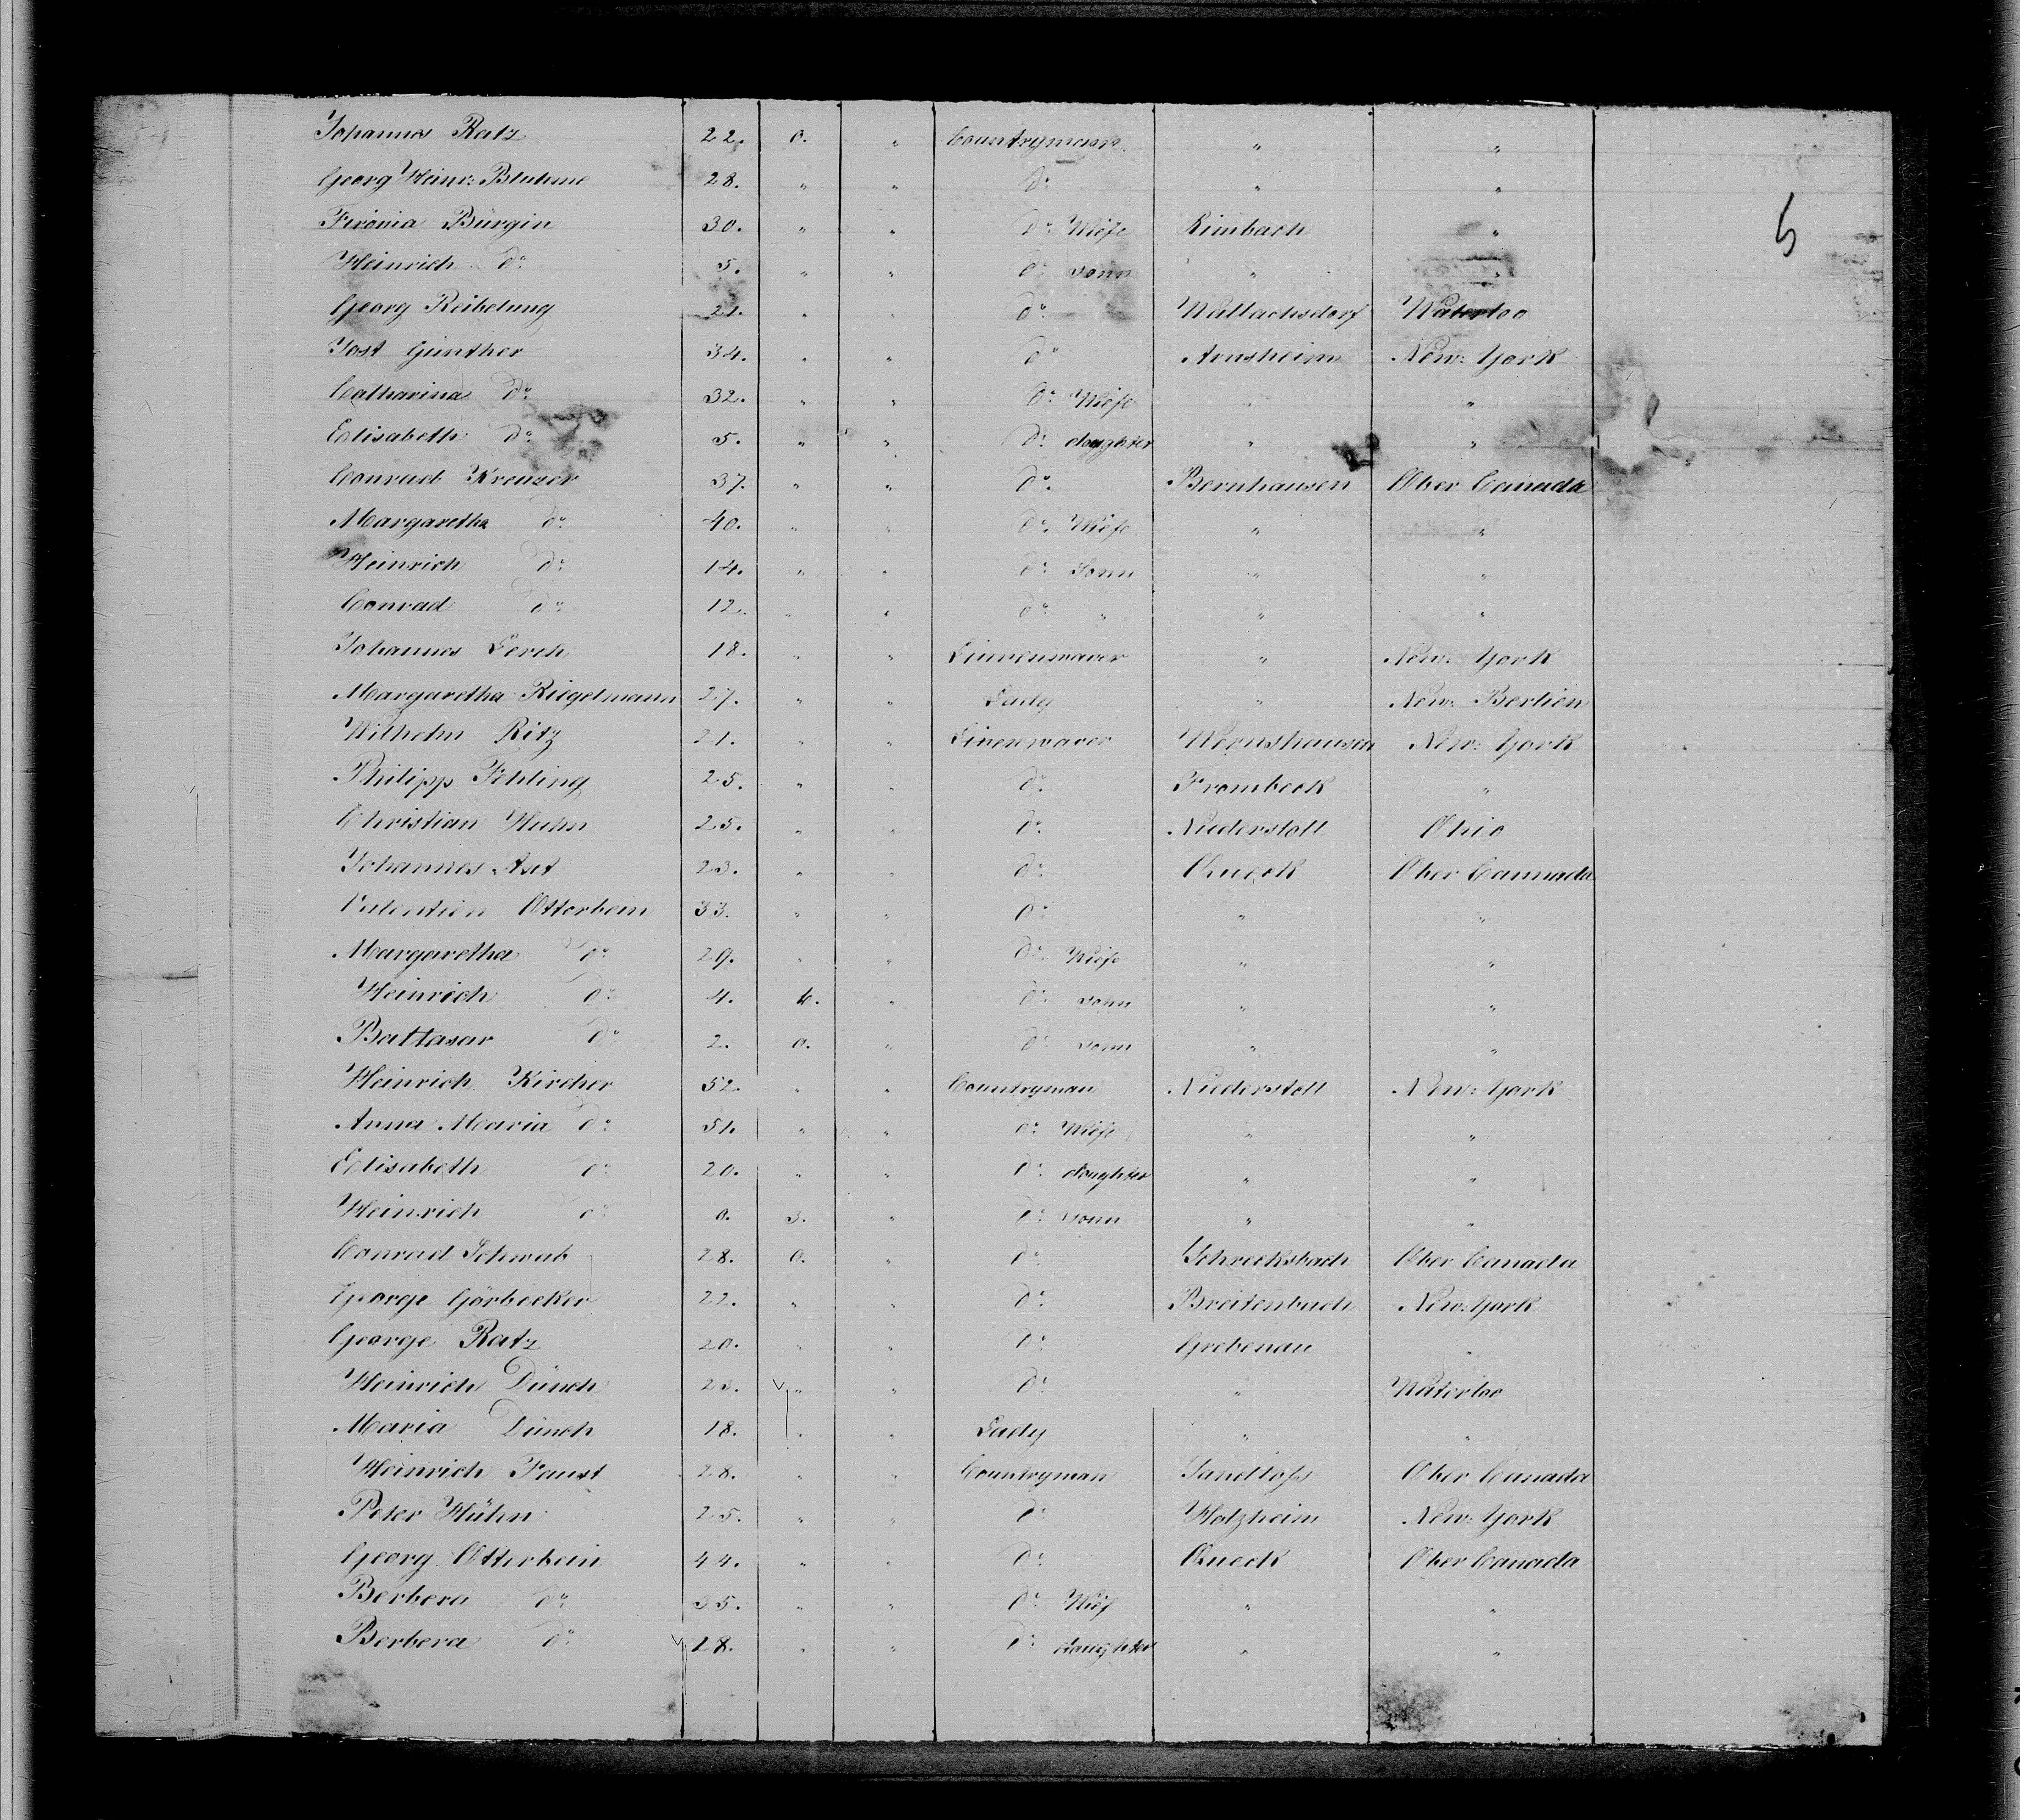 Johannes Ratz 22. 0. " Countrymann " "
Georg Heinr: Bluhme 28. " " do " "
Fironia Bürgin 30. " " do Wiefe Rimbach "
Heinrich do 5. " " do sonn " "
Georg Reibetung 21. " " do Wallachsdorf Waterloo
Jost Günther 34. " " do Arnsheim New: York
Catharina do 32. " " do Wiefe " "
Eelisabeth do 5. " " do daughter " "
Conrad Kreuzer 37. " " do Bernhausen Ober Canada
Margaretha do 40. " " do Wiefe " "
Heinrich do 14. " " do Sonn " "
Conrad do 12. " " do " " "
Johannes Lerch 18. " " Linnenwaver " New: York
Margaretha Riegelmann 27. " " Lady " New: Berlien
Wilhelm Ritz 21. " " Linenwaver Wernshausen New: York
Philipp Fehling 25. " " do Frombeck "
Christian Huhn 25. " " do Niederstoll Ohio
Johannes Ast 23. " " do Queck Ober Cannada
Valentien Otterbein 33. " " do " "
Margaretha do 29. " " do Wiefe " "
Heinrich do 4. 6. " do sonn " "
Baltasar do 2. 0. " do sonn " "
Heinrich Kircher 52. " " Countryman Niederstoll New: York
Anna Maria do 51. " " do Wiefe " "
Eelisabeth do 20. " " do daughter " "
Heinrich do 0. 3. " do sonn " "
Conrad Schwab 28. 0. " do Schrecksbach Ober Canada
George Görbecker 22. " " do Breitenbach New: York
George Ratz 20. " " do Grebenau "
Heinrich Dünch 23. " " do " Waterloo
Maria Dünch 18. " " Lady " "
Heinrich Faust 28. " " Countryman Sandloss Ober Canada
Peter Hühn 25. " " do Holzheim New: York
Georg Otterbein 44. " " do Queck Ober Canada
Berbera do 35. " " do Wief " "
Berbera do 28. " " do daughter " "
5